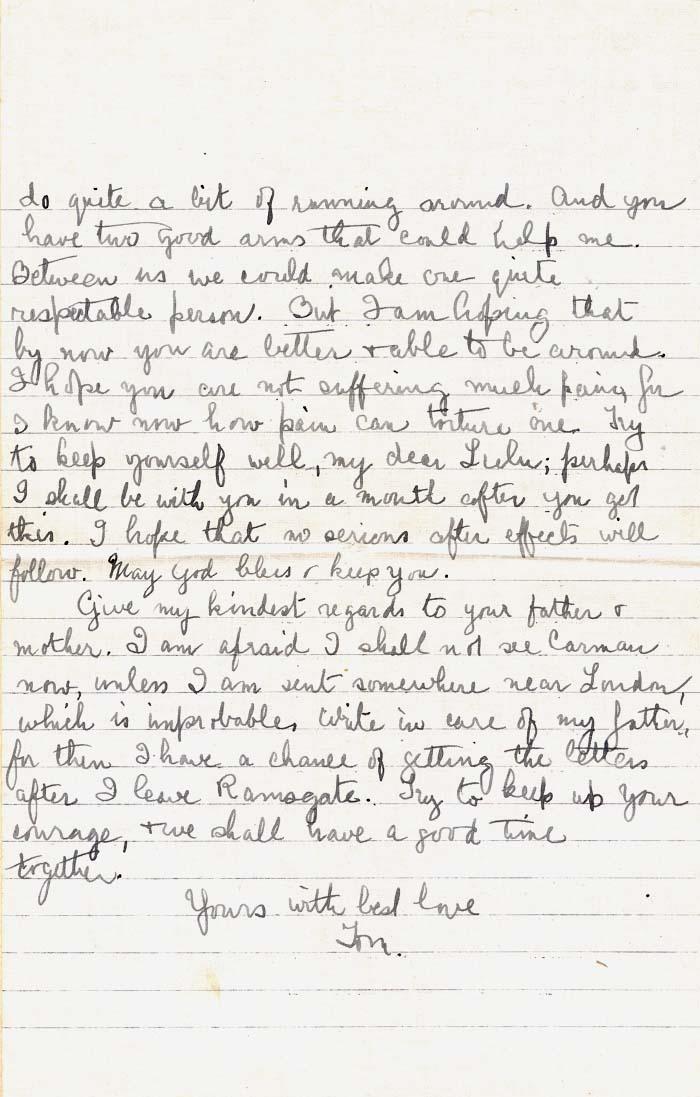 do quite a bit of running around. And you
have two good arms that could help me.
Between us we could make one quite
respectable person. But I am hoping that
by now you are better + able to be around.
I hope you are not suffering much pain, for
I know now how pain can torture one. Try
to keep yourself well, my dear Lulu; perhaps
I shall be with you in a month after you get
this. I hope that no serious after effects will
follow. May God bless & keep you.
Give my kindest regards to your father &
mother. I am afraid I shall not see Carman
now, unless I am sent somewhere near London,
which is improbable. Write in care of my father,
for then I have a chance of getting the letters
after I leave Ramsgate. Try to keep up your
courage, + we shall have a good time
together.
Yours with best love
Tom.